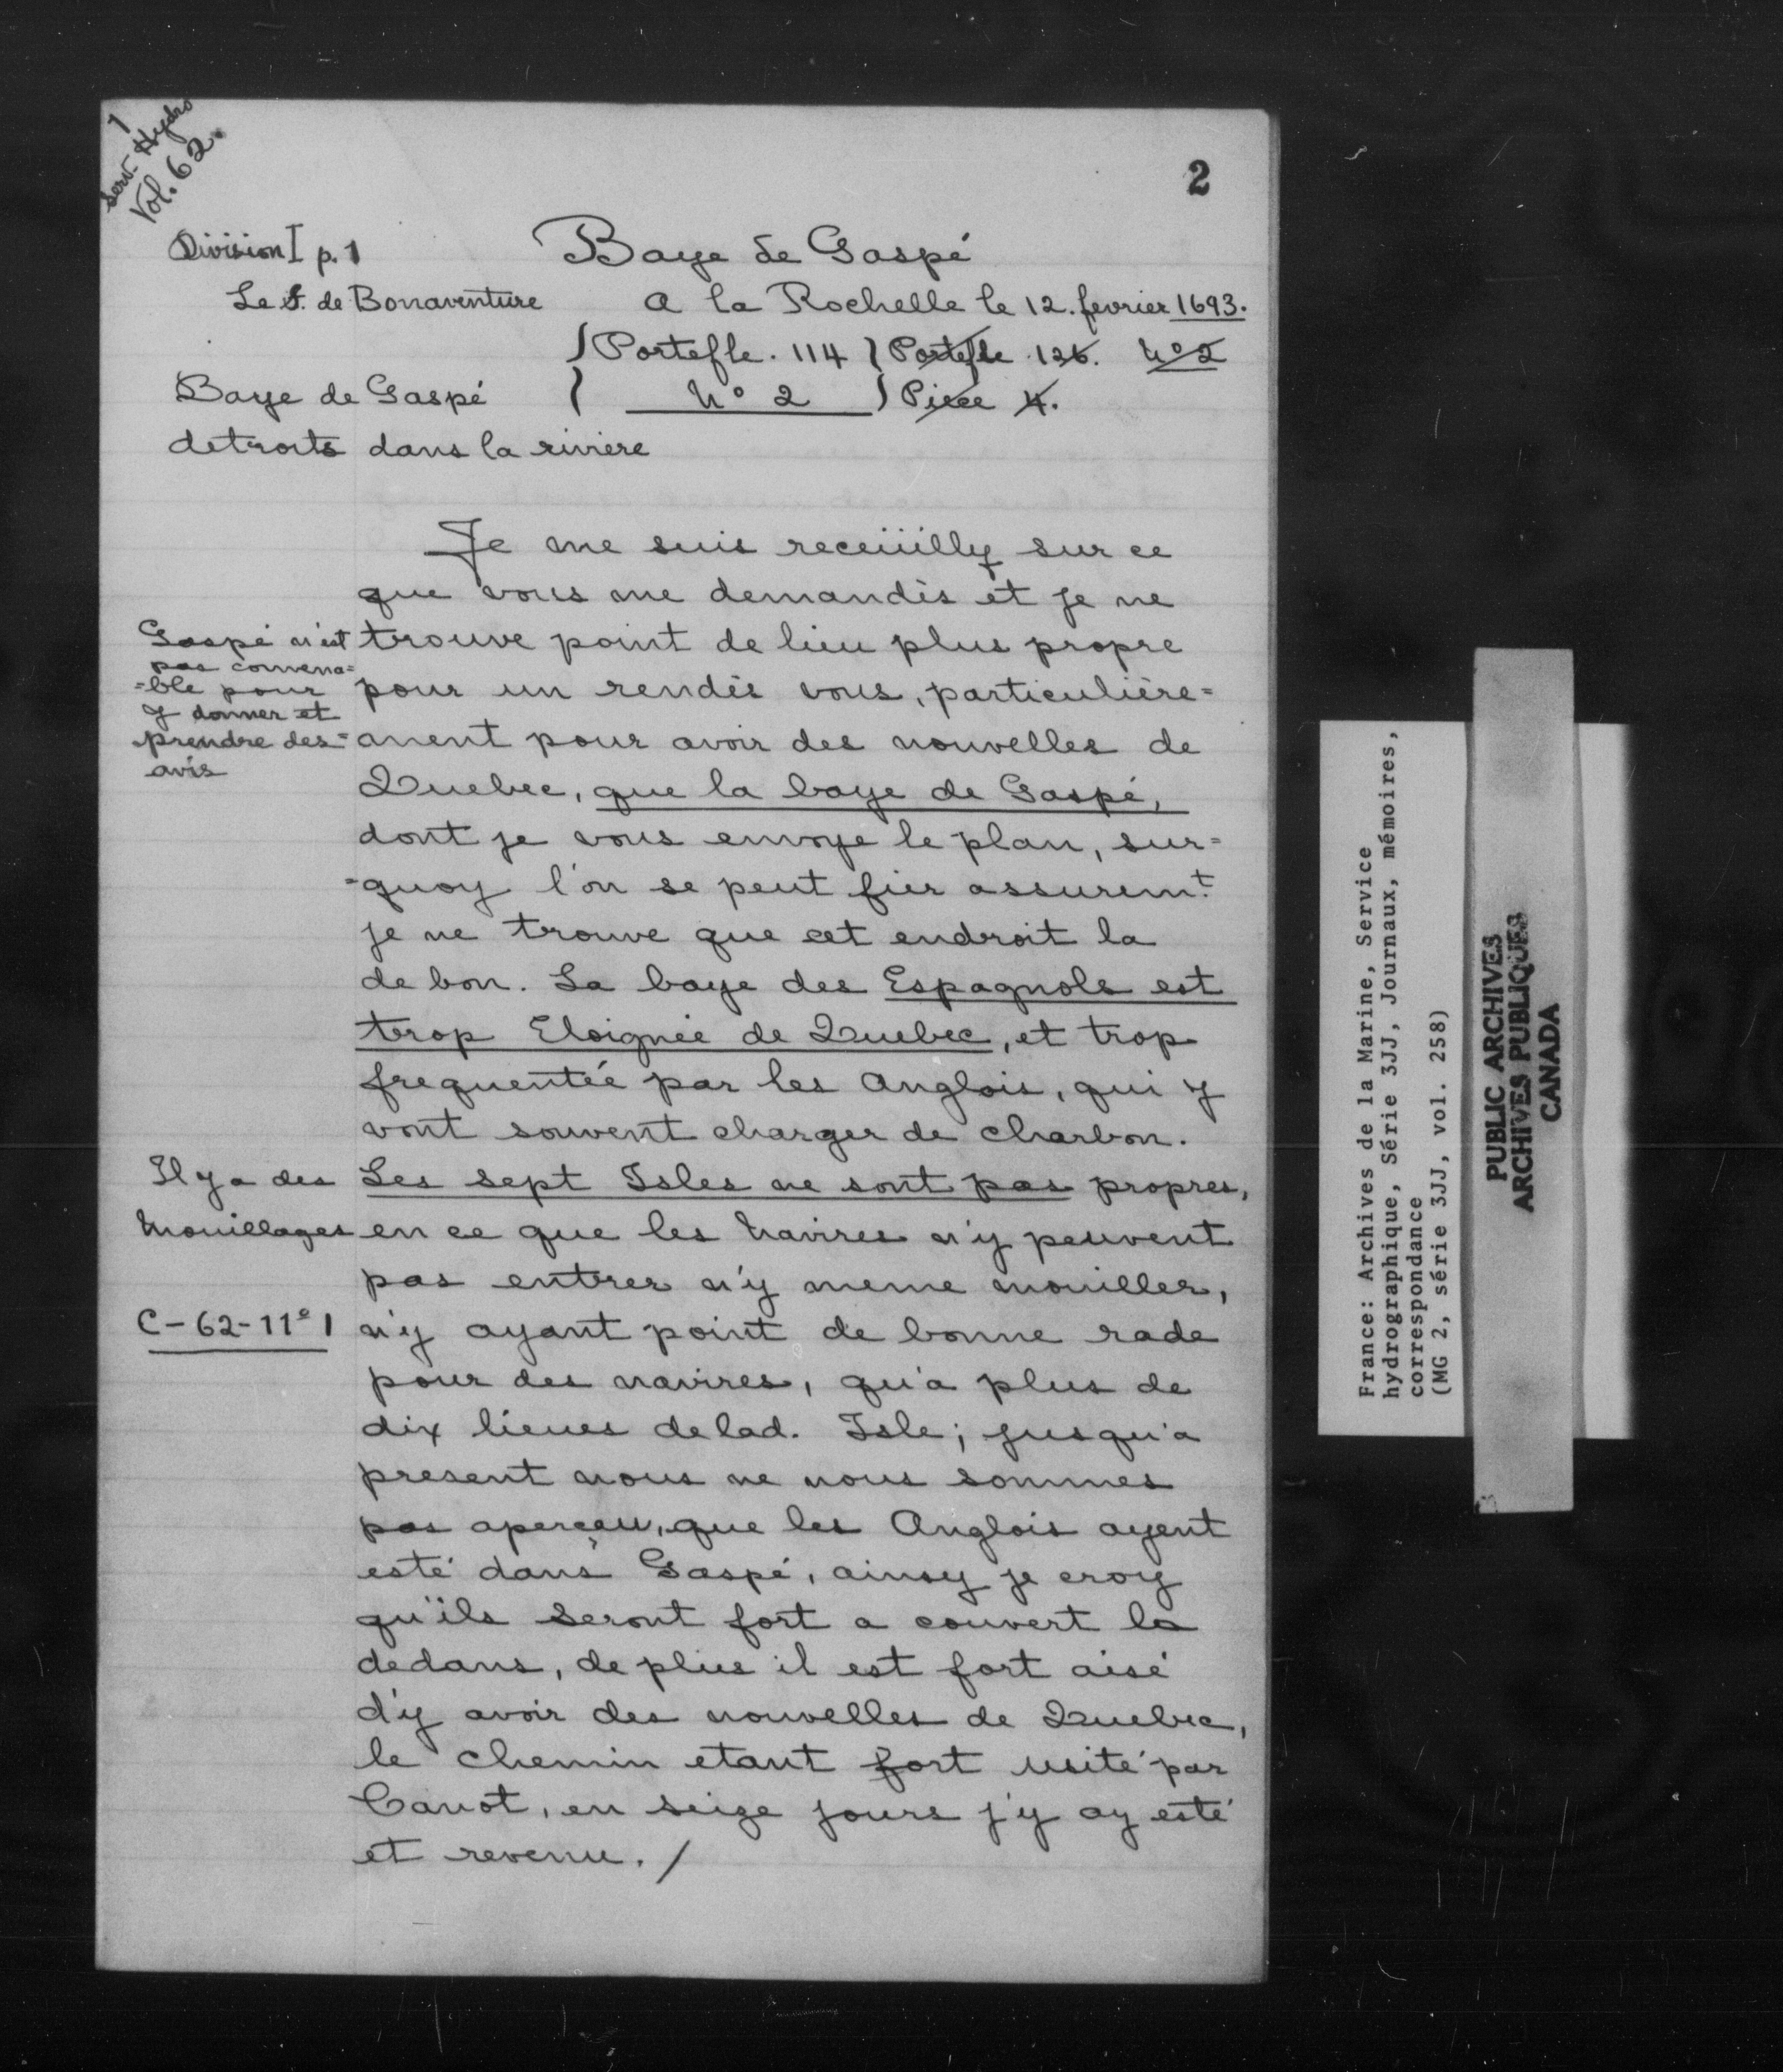 1
Serv. Hydro
Vol. 62.
2
Division I p. 1
Baye de Gaspé
Le S. de Bonaventure
a la Rochelle le 12. fevrier 1693.
Portefle. 114
Portefle 126. No 2
Baye de Gaspé
No 2
Pièce 4.
detroits dans la riviere
Je me suis receüilly sur ce
que vous me demandés et je ne
trouve point de lieu plus propre
pour un rendés vous, particulière=
ment pour avoir des nouvelles de
Quebec, que la baye de Gaspé,
dont je vous envoye le plan, sur=
=quoy l'on se peut fier assuremt
je ne trouve que cet endroit la
de bon. La baye des Espagnols est
trop Eloignée de Quebec, et trop
frequentée par les Anglois, qui y
vont souvent charger de charbon.
Les sept Isles ne sont pas propres,
en ce que les Navires n'y peuvent
pas entrer n'y meme mouiller,
n'y ayant point de bonne rade
pour des navires, qu'a plus de
dix lieues de lad. Isle; jusqu'a
present nous ne nous sommes
pas aperceu, que les Anglois ayent
esté dans Gaspé, ainsy je croy
qu'ils seront fort a couvert la
dedans, de plus il est fort aisé
d'y avoir des nouvelles de Quebec,
le chemin etant fort usité par
Canot, en seize jours j'y ay esté
et revenu. /
Gaspé n'est
pas convena=
=ble pour
y donner et
prendre des=
avis
Il y a des
Mouillages
C-62-11e 1
France: Archives de la Marine, Service
hydrographique, Série 3JJ, Journaux, mémoires,
correspondance
(MG 2, série 3JJ, vol. 258)
PUBLIC ARCHIVES
ARCHIVES PUBLIQUES
CANADA